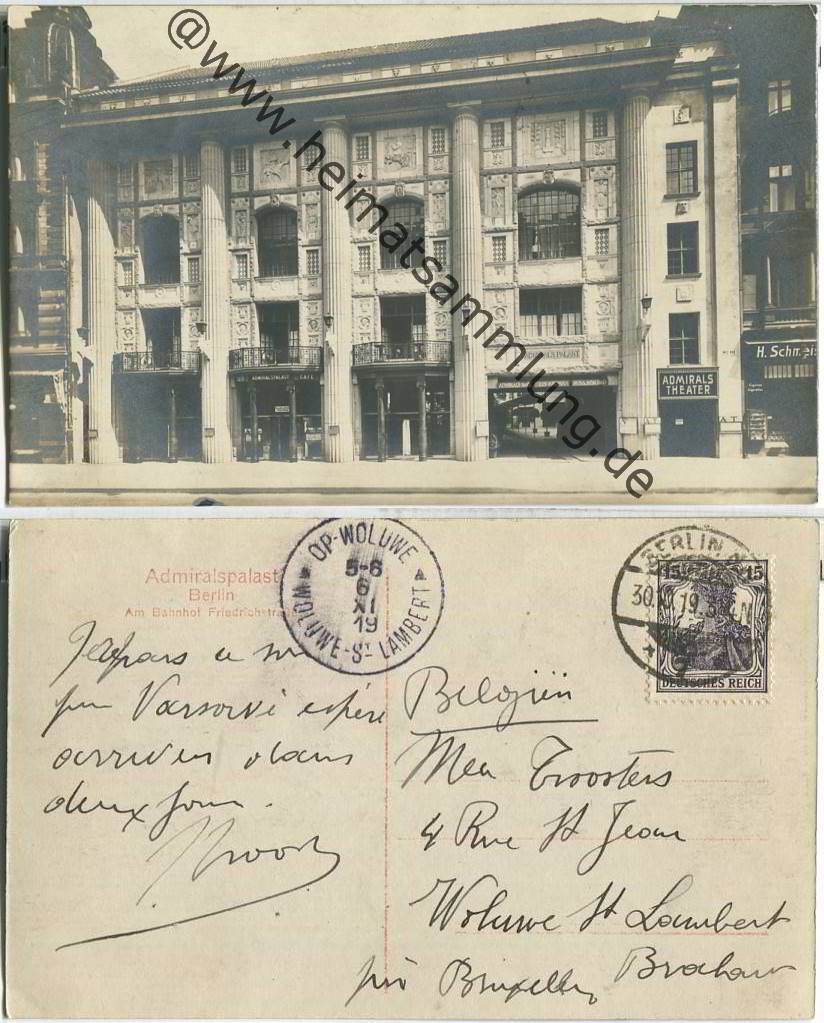 @www.heimatsammlung.de
ADMIRALSPALAST CAFE
H. Schm
ADMIRALS
THEATER
Admiralspalast
Berlin
Am Bahnhof Friedrichstra
OP-WOLUWE
5-6
6
XI
19
WOLUWE-ST LAMBERT
BERLIN
30. 19. 8
15 15
DEUTSCHES REICH
Je pars ce soir
pour Varsovie espère
arriver dans
deux jours.
Belgiën
Troosters
4 Rue St Jean
Woluwe St Lambert
près Bruxelles Brabant